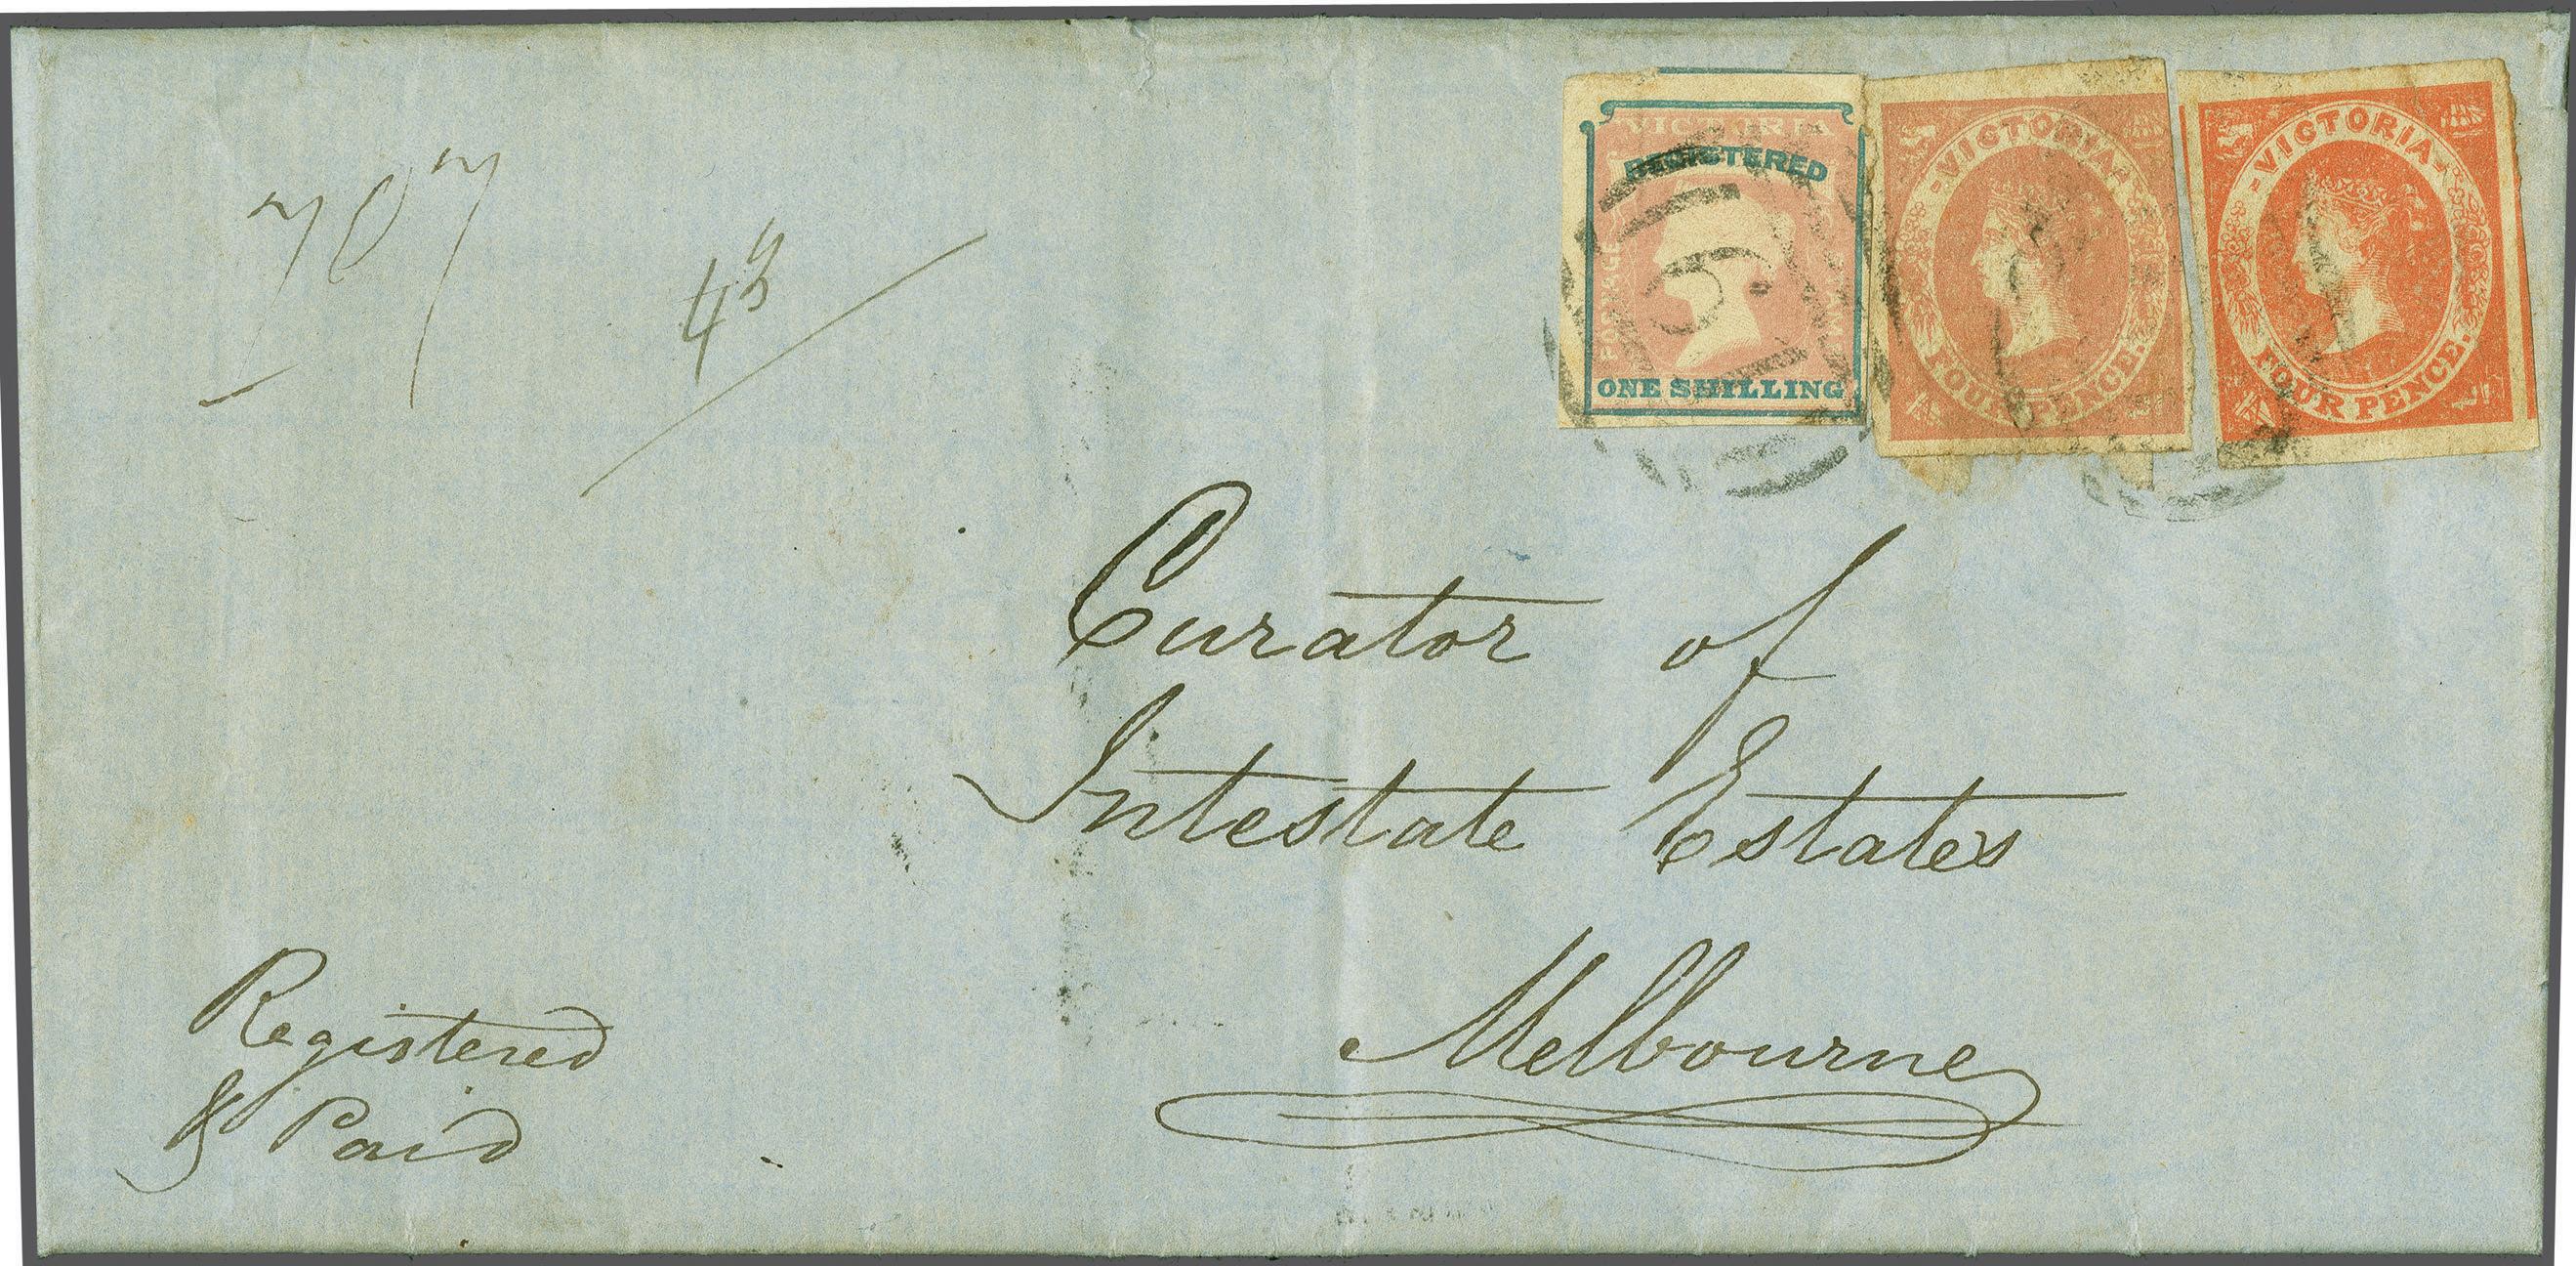 707
43
VICTORIA
REGISTERED
ONE SHILLING
VICTORIA
FOUR PENCE.
VICTORIA
FOUR PENCE.
Curator of
Intestate Estates
Melbourne
Registered
& Paid